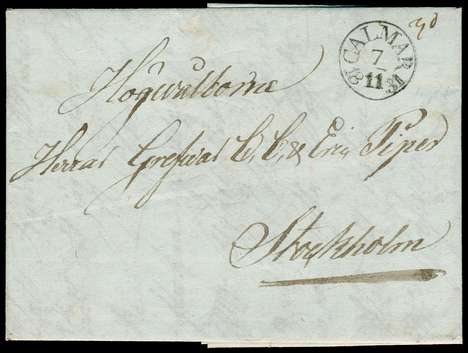 CALMAR
7
11
18 31
Högwälborne
Herrar Grefwar C. C. & Eric Piper
Stockholm